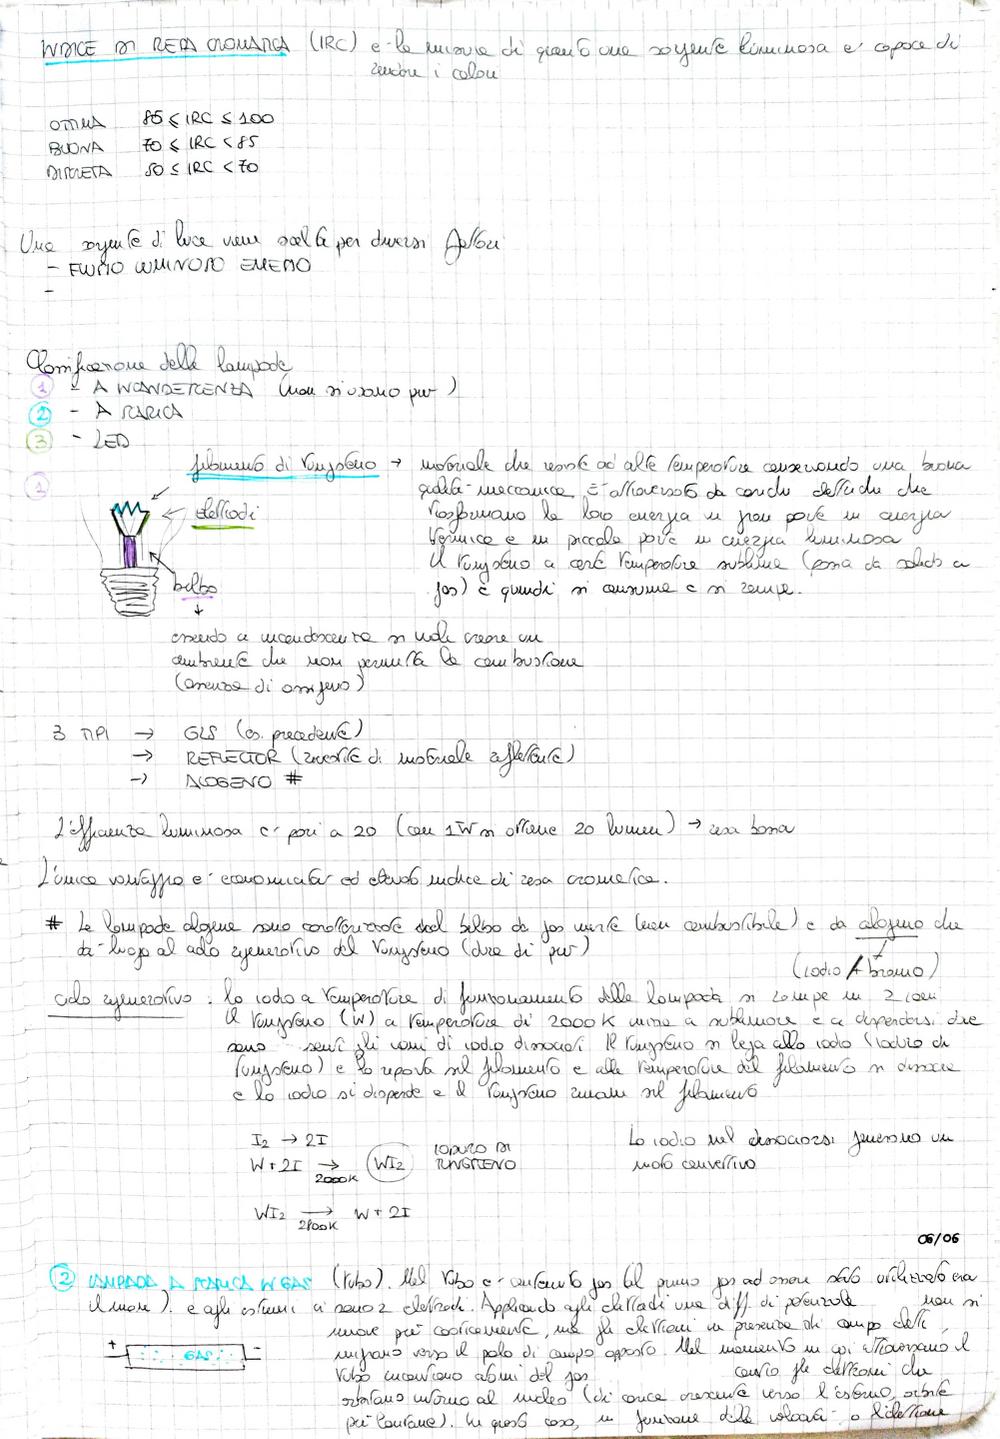 INDICE DI RESA CROMATICA (IRC) è la misura di quanto una sorgente luminosa è capace di
rendere i colori
OTTIMA 85 ≤ IRC ≤ 100
BUONA 70 ≤ IRC < 85
DISCRETA 50 ≤ IRC < 70
Una sorgente di luce viene scelta per diversi fattori
- FLUSSO LUMINOSO EMESSO
-
Classificazione delle lampade
1 - A INCANDESCENZA (non si usano più)
2 - A SCARICA
3 - LED
1
filamento di tungsteno → materiale che resiste ad alte temperature conservando una buona
qualità meccanica. È attraversato da cariche elettriche che
elettrodi
trasformano la loro energia in gran parte in energia
termica e in piccola parte in energia luminosa
Il tungsteno a certe temperature sublima (passa da solido a
gas) e quindi si consuma e si rompe.
bulbo
↓
essendo a incandescenza si vuole creare un
ambiente che non permetta la combustione
(assenza di ossigeno)
3 TIPI → GLS (es. precedente)
→ REFLECTOR (rivestite di materiale riflettente)
→ ALOGENO #
L'efficienza luminosa è pari a 20 (con 1W si ottiene 20 lumen) → resa bassa
L'unico vantaggio è economicità ed elevato indice di resa cromatica.
# Le lampade alogene sono caratterizzate dal bulbo da gas inerte (non combustibile) e da alogeno che
dà luogo al ciclo rigenerativo del tungsteno (dura di più)
(iodio / bromo)
ciclo rigenerativo: lo iodio a temperatura di funzionamento della lampada si rompe in 2 ioni
il tungsteno (W) a temperatura di 2000K inizia a sublimare e a disperdersi dove
sono presenti gli ioni di iodio dissociati. Il tungsteno si lega allo iodio (ioduro di
tungsteno) e lo riporta sul filamento e alla temperatura del filamento si dissocia
e lo iodio si disperde e il tungsteno rimane sul filamento
I2 → 2I
W + 2I → 2000K WI2 IODURO DI TUNGSTENO
Lo iodio nel dissociarsi generano un
moto convettivo
WI2 → 2800K W + 2I
06/06
2 LAMPADA A SCARICA IN GAS (tubo). Nel tubo è contenuto gas (il primo gas ad essere stato utilizzato era
il neon) e agli estremi ci sono 2 elettrodi. Applicando agli elettrodi una diff. di potenziale non si
muove più caoticamente, ma gli elettroni in presenza di campo elett.
+ GAS -
migrano verso il polo di campo opposto. Nel momento in cui attraversano il
tubo incontrano atomi del gas gli elettroni che
orbitano intorno al nucleo (di crescente verso l'esterno, orbite
più lontane). In questo caso, in funzione della velocità o l'elettrone